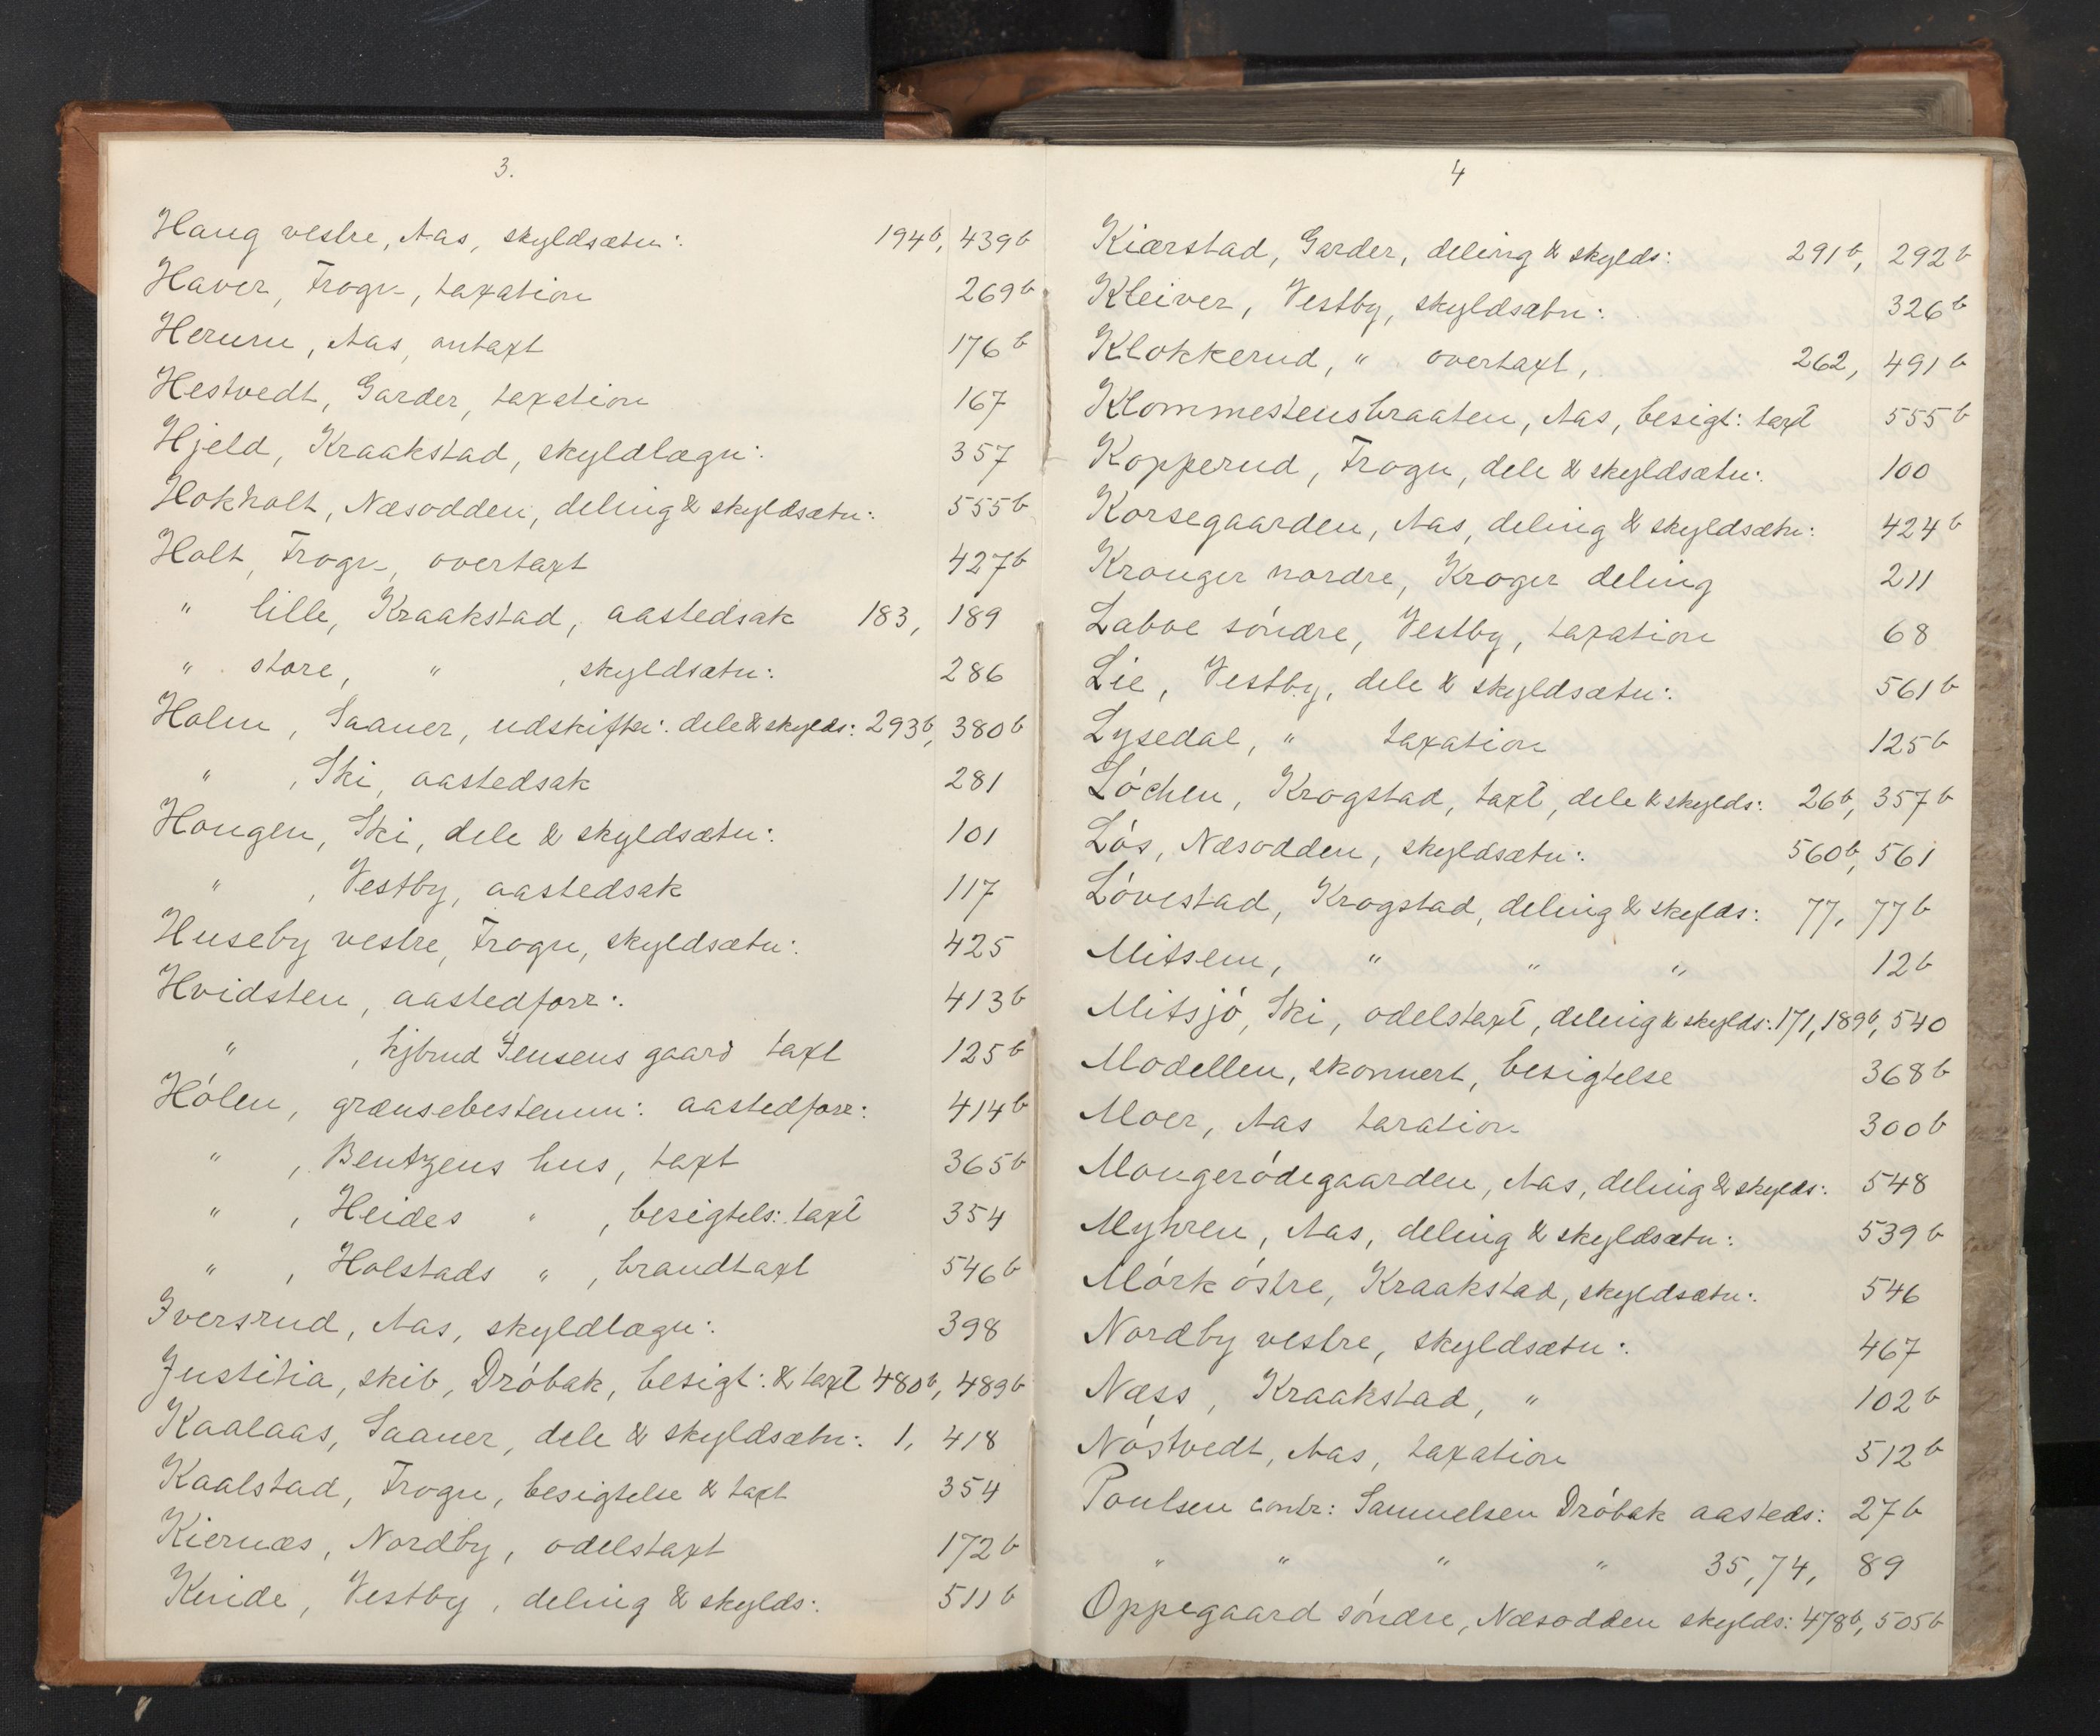 3.
Haug vestre, Aas, skyldsætn: 194b, 439b
Haver, Frogn, taxation 269b
Herum, Aas, omtaxt 176b
Hestvedt, Garder, taxation 167
Hjeld, Kraakstad, skyldlægn: 357
Hokholt, Næsodden, deling & skyldsætn: 555b
Holt, Frogn, overtaxt 427b
" lille, Kraakstad, aastedsak 183, 189
" store, " , skyldsætn: 286
Holm, Saaner, udskiftn: dele & skylds: 293b, 380b
" , Ski, aastedsak 281
Hougen, Ski, dele & skyldsætn: 101
" , Vestby, aastedsak 117
Huseby vestre, Frogn, skyldsætn: 425
Hvidsten, aastedforr: 413b
" , Jensens gaard taxt 125b
Hólen, grænsebestemm: aastedforr: 414b
" , Bentzens hus, taxt 365b
" , Heides " , besigtels: taxt 354
" , Holstads " , brandtaxt 546b
Iversrud, Aas, skyldlægn: 398
Justitia, skib, Dróbak, besigt: & taxt 480b, 489b
Kaalaas, Saaner, dele & skyldsætn: 1, 418
Kaalstad, Frogn, besigtelse & taxt 354
Kiernæs, Nordby, odelstaxt 172b
Kinde, Vestby, deling & skylds: 511b
4
Kiærstad, Garder, deling & skylds: 291b, 292b
Kleiver, Vestby, skyldsætn: 326b
Klokkerud, " overtaxt, 262, 491b
Klommestensbraaten, Aas, besigt: taxt 555b
Kopperud, Frogn, dele & skyldsætn: 100
Korsegaarden, Aas, deling & skyldsætn: 424b
Kronger nordre, Kroger deling 211
Laboe sóndre, Vestby, taxation 68
Lie, Vestby, dele & skyldsætn: 561b
Lysedal, " taxation 125b
Lóchen, Krogstad, taxt, dele & skylds: 26b, 357b
Lós, Næsodden, skyldsætn: 560b, 561
Lóvestad, Krogstad, deling & skylds: 77, 77b
Mitsem, " " " 12b
Mitsjó, Ski, odelstaxt, deling & skylds: 171, 189b, 540
Modellen, skonnert, besigtelse 368b
Moer, Aas taxation 300b
Mongeródegaarden, Aas, deling & skylds: 548
Myhren, Aas, deling & skyldsætn: 539b
Mórk óstre, Kraakstad, skyldsætn: 546
Nordby vestre, skyldsætn: 467
Næss, Kraakstad, " 102b
Nóstvedt, Aas, taxation 512b
Poulsen contr: Samuelsen Dróbak aasteds: 27b
" " " " 35, 74, 89
Oppegaard sóndre, Næsodden skylds: 478b, 505b